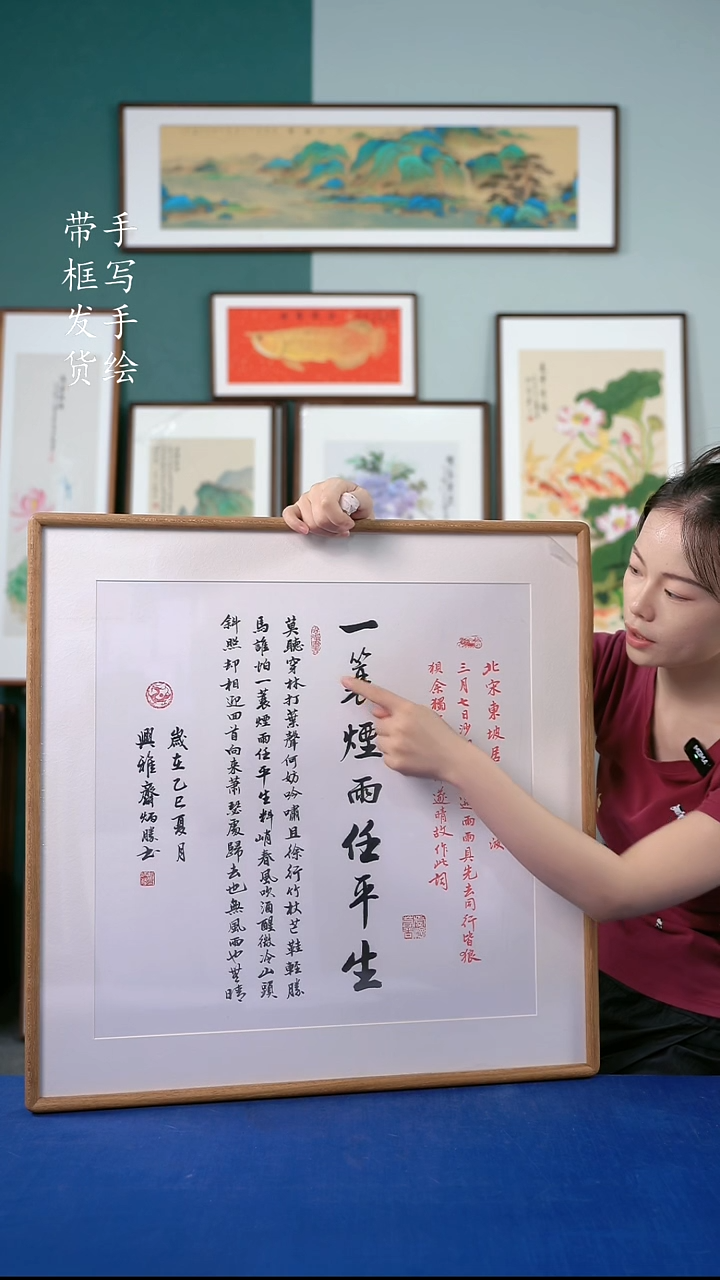 手写手绘
带框发货
北宋東坡居
三月七日沙 雨雨具先去同行皆狼
狽余獨 遂晴故作此詞
一蓑煙雨任平生
莫聽穿林打葉聲何妨吟嘯且徐行竹杖芒鞋輕勝
馬誰怕一蓑煙雨任平生料峭春風吹酒醒微冷山頭
斜照却相迎回首向来蕭瑟處歸去也無風雨也無晴
歲在乙巳夏月
興雅齋炳勝书